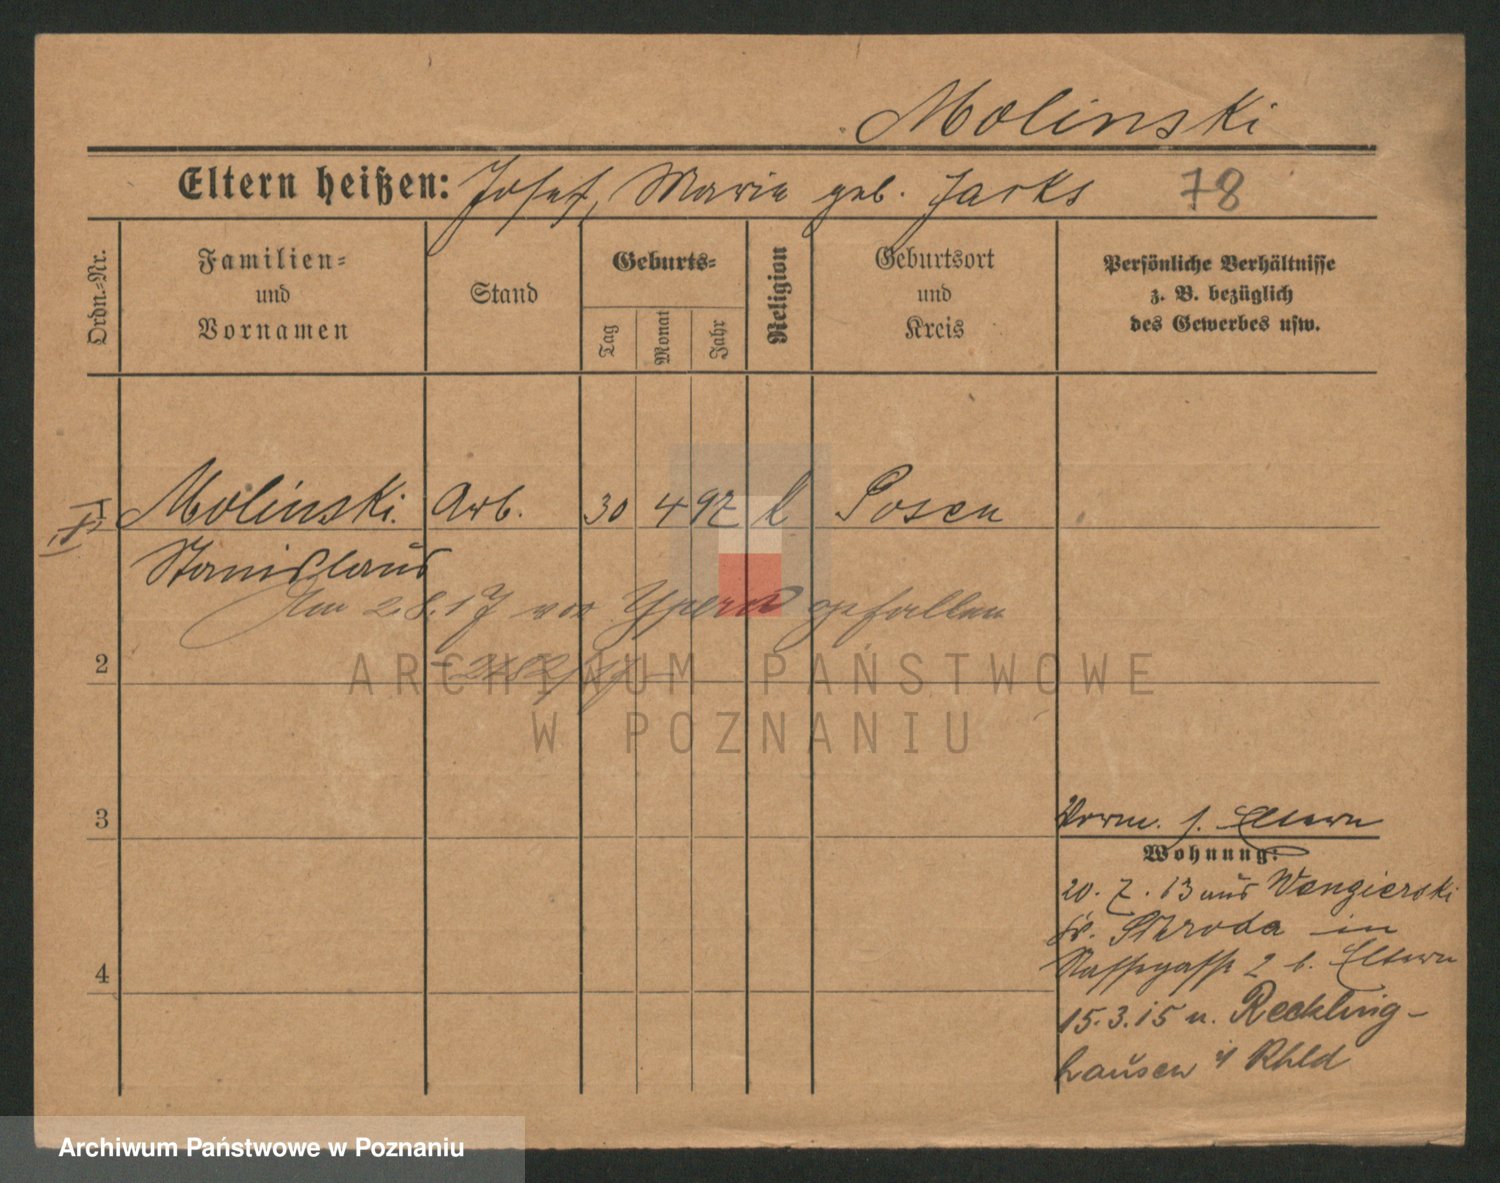 Molinski
Eltern heißen: Josef, Marie geb. Jarks 78
Ordn.-Nr.
Familien-
und
Vornamen
Stand
Geburts-
Tag
Monat
Jahr
Religion
Geburtsort
und
Kreis
Persönliche Verhältnisse
z. B. bezüglich
des Gewerbes usw.
1 Molinski Arb. 30 4 97 k Posen
Stanislaus
Am 2.8.17 vor Ypern gefallen
2
ARCHIWUM PAŃSTWOWE
W POZNANIU
3
Vorm. s. Eltern
Wohnung:
20. 7. 13 aus Wengierski
Kr. Schroda in
2 b. Eltern
4
15.3.15 n. Reckling-
hausen i/ Rhld
Archiwum Państwowe w Poznaniu